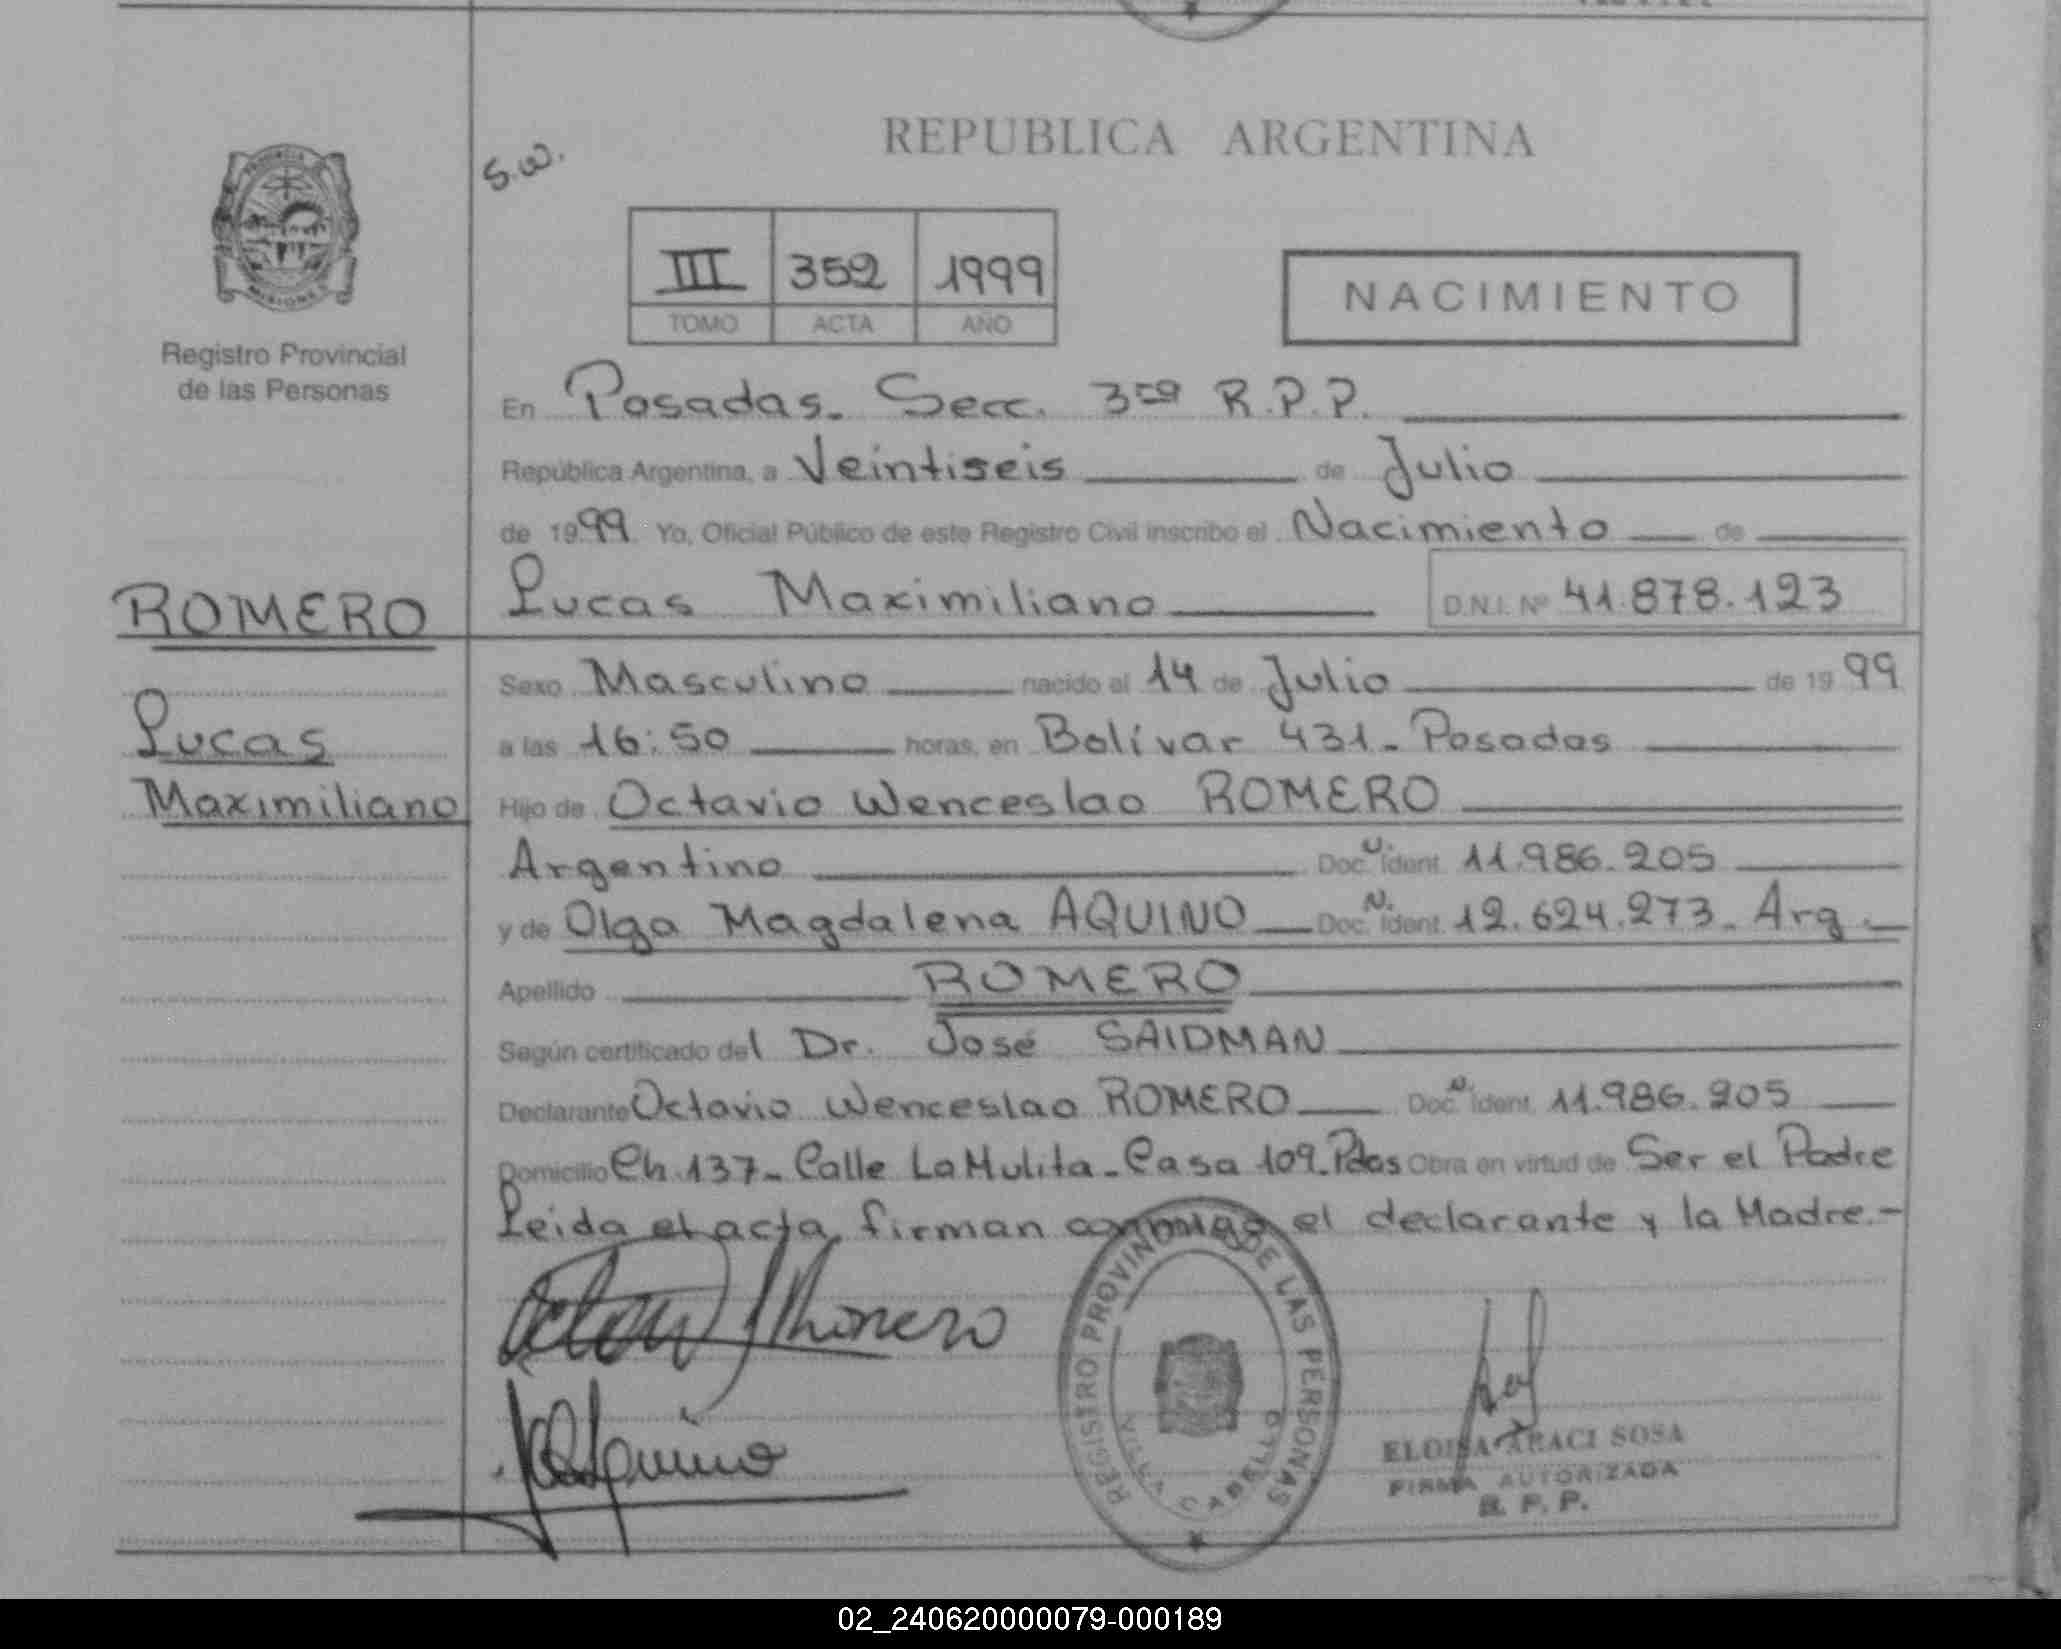 REPUBLICA ARGENTINA
S.W.
PROVINCIA
MISIONES
Registro Provincial
de las Personas
III 352 1999
TOMO ACTA AÑO
NACIMIENTO
En Posadas. Secc. 3ra R.P.P.
República Argentina, a Veintiseis de Julio
de 1999 Yo, Oficial Público de este Registro Civil inscribo el Nacimiento de
Lucas Maximiliano D.N.I. Nº 41.878.123
ROMERO
Lucas
Maximiliano
Sexo Masculino nacido el 14 de Julio de 1999
a las 16:50 horas, en Bolívar 431. Posadas
Hijo de Octavio Wenceslao ROMERO
Argentino Doc. N. Ident. 11.986.205
y de Olga Magdalena AQUINO Doc. N. Ident. 12.624.273. Arg.
Apellido ROMERO
Según certificado del Dr. José SAIDMAN
Declarante Octavio Wenceslao ROMERO Doc. N. Ident. 11.986.205
Domicilio Ch. 137. Calle La Mulita. Casa 109. Pdas Obra en virtud de Ser el Padre
Leida el acta, firman conmigo el declarante y la Madre.-
REGISTRO PROVINCIAL DE LAS PERSONAS
VILLA CABELLO
ELOISA ARACI SOSA
FIRMA AUTORIZADA
R. P. P.
02_240620000079-000189